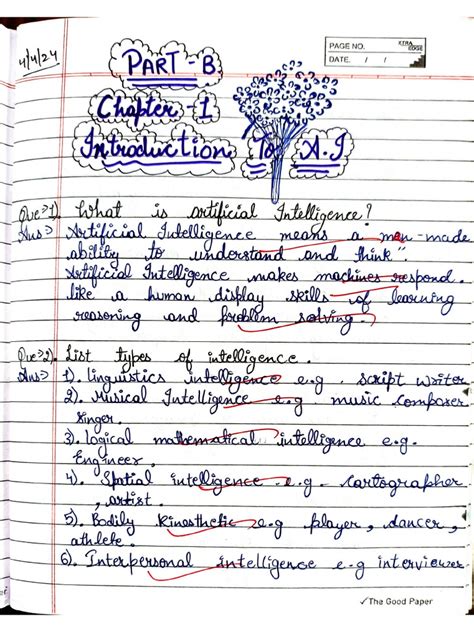 4/4/24
PAGE NO.
XTRA EDGE
DATE. / /
PART-B
Chapter-1
Introduction To A.I
Que⇒1). What is artificial Intelligence?
Ans⇒ Artificial Intelligence means a man-made
ability to understand and think"
Artificial Intelligence makes machines respond.
like a human display skills of learning
reasoning and problem solving.
Que⇒2). List types of intelligence.
Ans⇒ 1). linguistics intelligence e.g. script writer
2). Musical Intelligence e.g music composer
singer.
3). logical mathematical intelligence e.g.
Engineer.
4). Spatial intelligence e.g. cartographer
, artist.
5). Bodily kinesthetic e.g player, dancer,
athlete.
6). Interpersonal intelligence e.g interviewer
✓The Good Paper